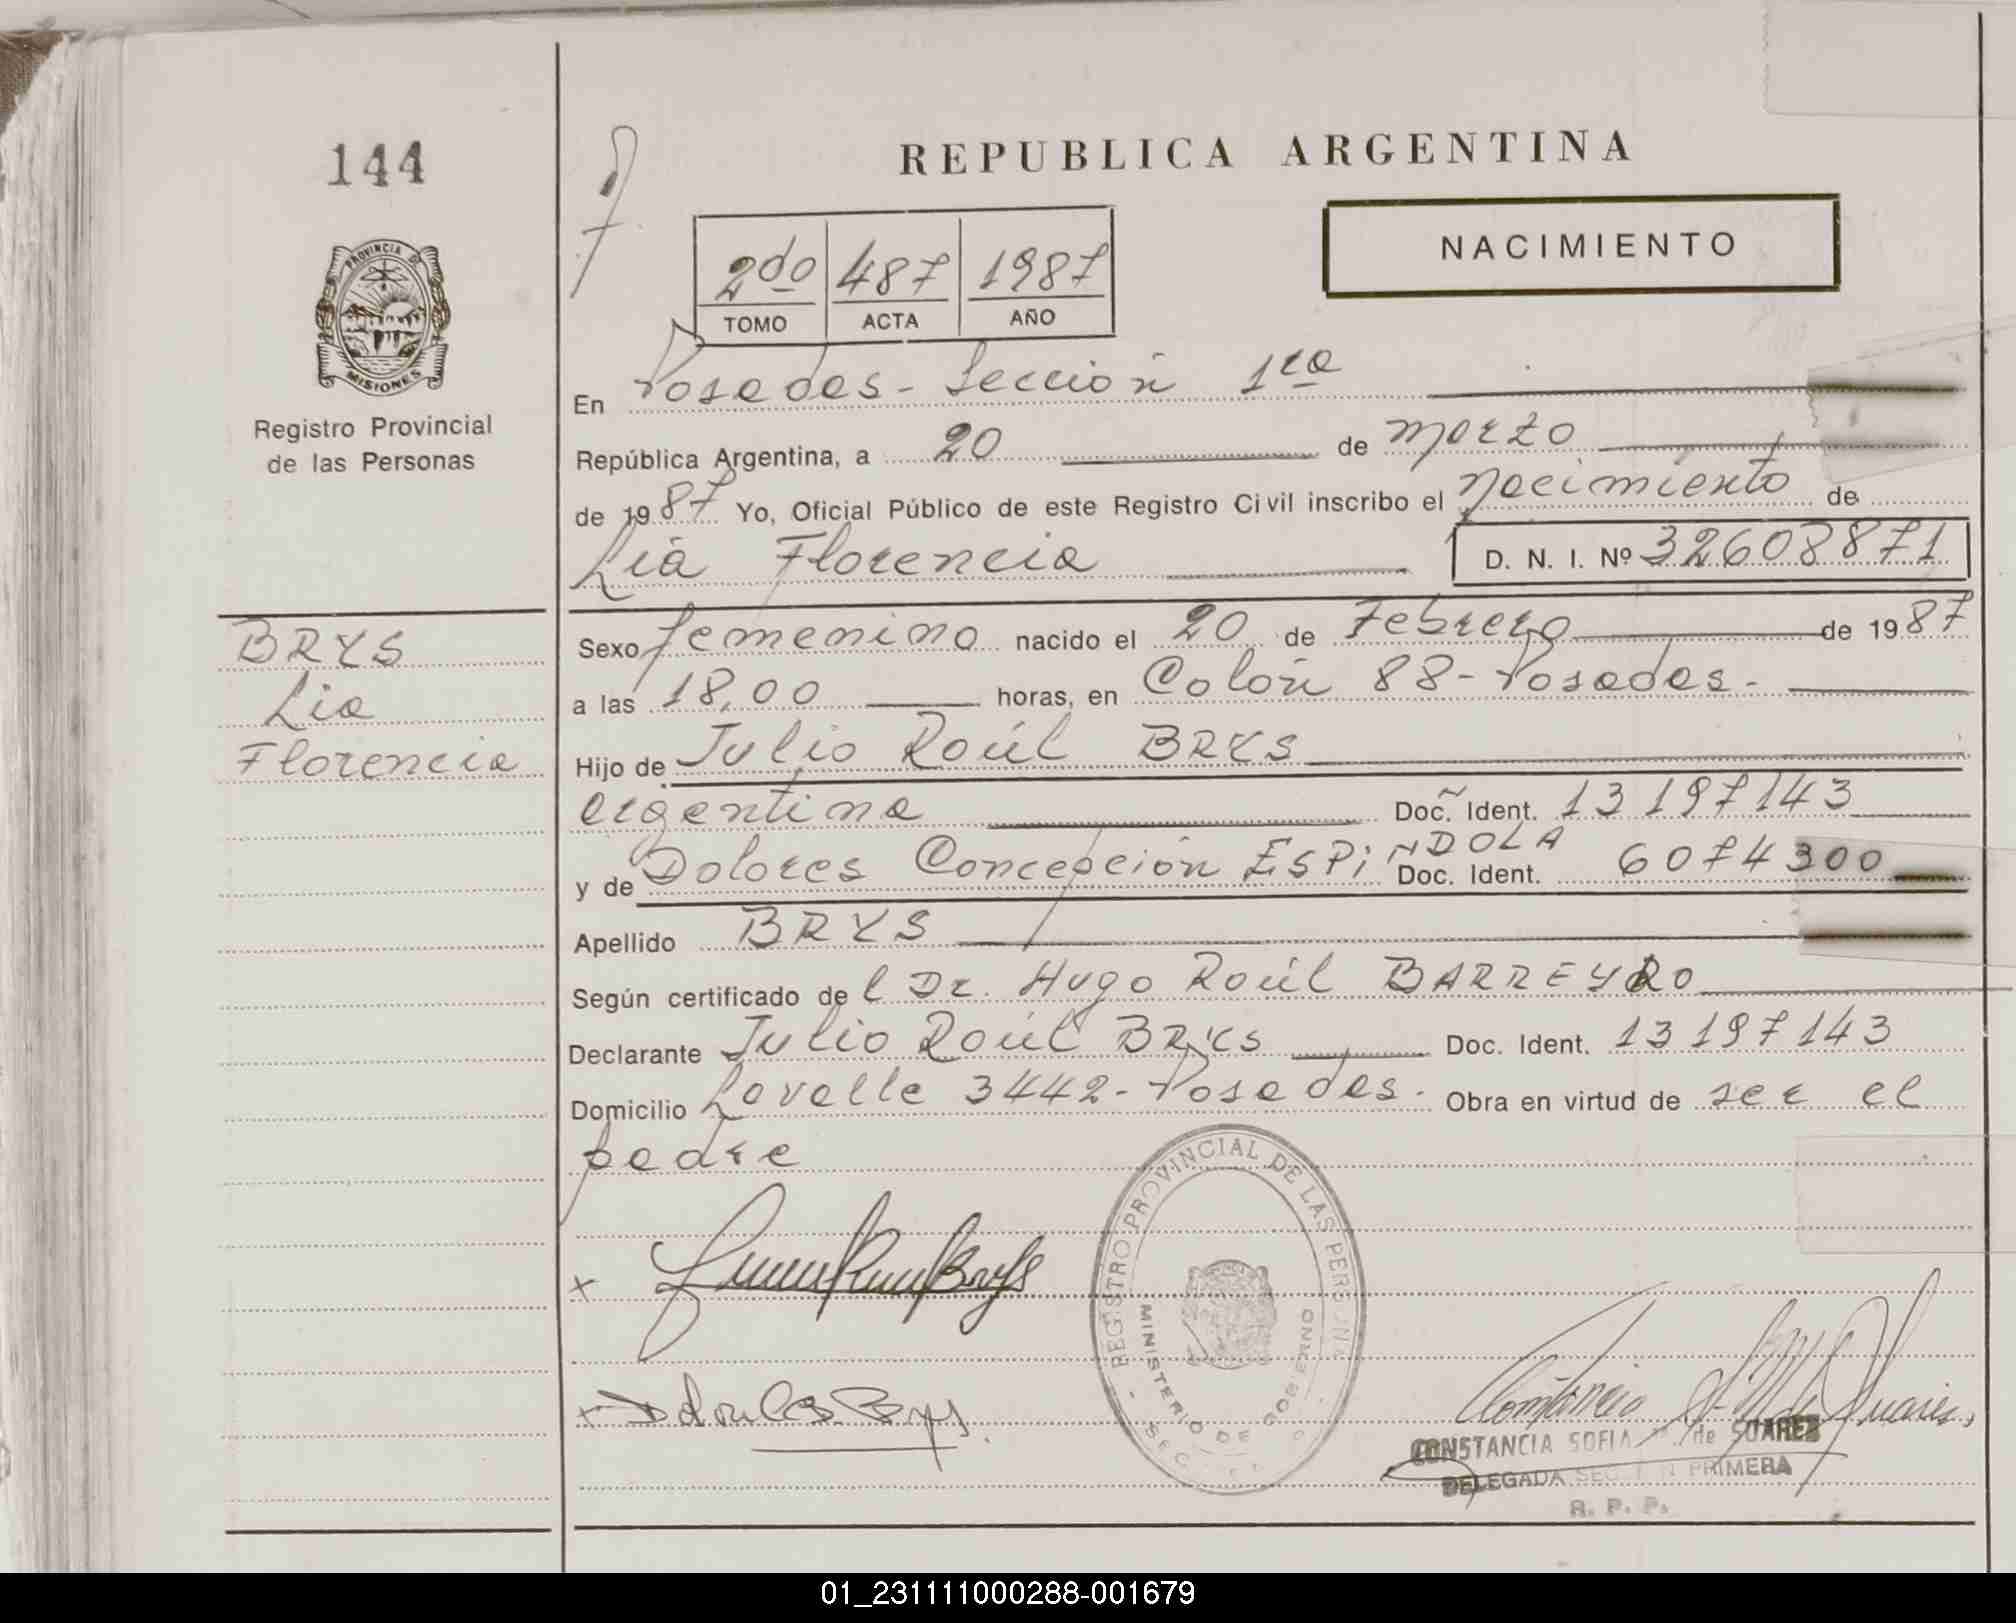 144
PROVINCIA DE
MISIONES
Registro Provincial
de las Personas
BRYS
Lia
Florencia
REPUBLICA ARGENTINA
NACIMIENTO
2do 487 1987
TOMO ACTA AÑO
En Posadas - Sección 1ra
República Argentina, a 20 de marzo
de 1987 Yo, Oficial Público de este Registro Civil inscribo el nacimiento de
Lia Florencia D. N. I. Nº 32608871
Sexo femenino nacido el 20 de Febrero de 1987
a las 18,00 horas, en Colón 88 - Posadas -
Hijo de Julio Raúl BRYS
argentina Doc. Ident. 13197143
y de Dolores Concepción ESPINDOLA Doc. Ident. 6074300
Apellido BRYS
Según certificado del Dr. Hugo Raúl BARREYRO
Declarante Julio Raúl BRYS Doc. Ident. 13197143
Domicilio Lavalle 3442 - Posadas - Obra en virtud de ser el
padre
REGISTRO PROVINCIAL DE LAS PERSONAS
MINISTERIO DE GOBIERNO
Dolores Brys
CONSTANCIA SOFIA de SUAREZ
DELEGADA SECCION PRIMERA
R. P. P.
01_231111000288-001679